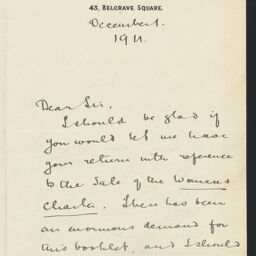 43, BELGRAVE SQUARE.
December 1.
1911.
Dear Sir,
I should be glad if
you would let me have
your return with reference
to the Sale of the Womens
Charter. There has been
an enormous demand for
this booklet, and I should